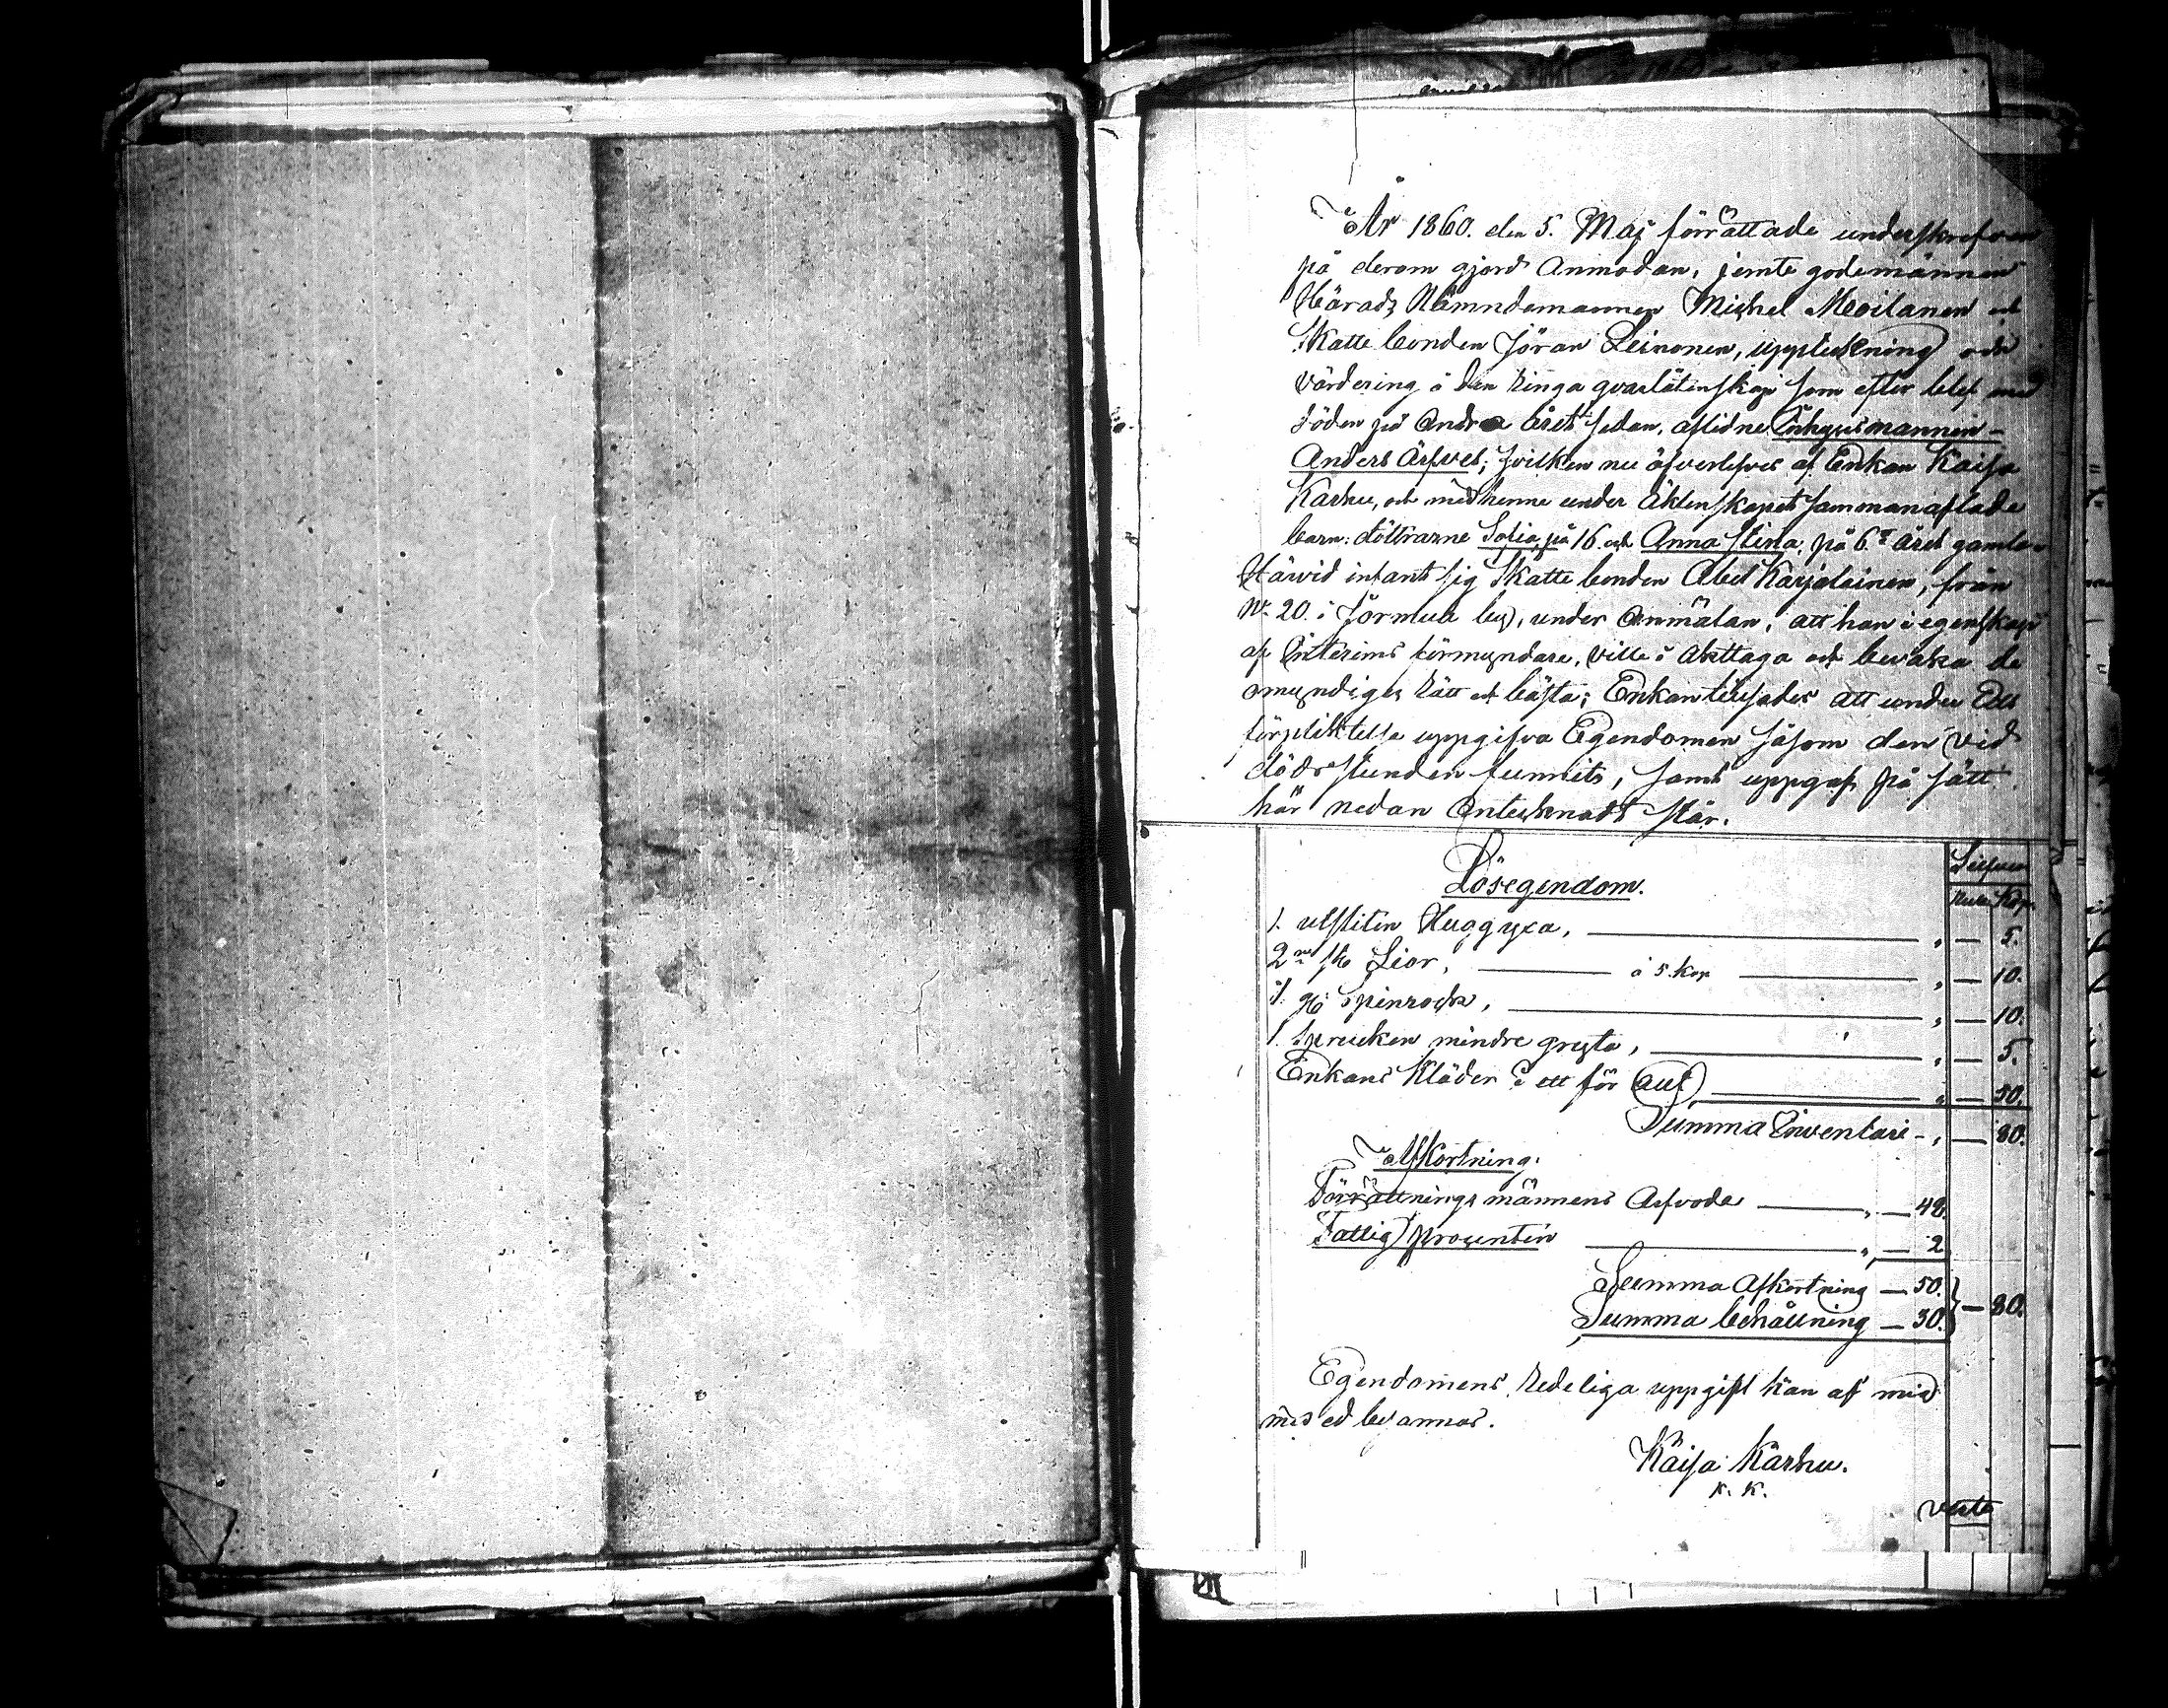 År 1860. den 5. Maj förrättade underskrefven
på derom gjord Anmodan, jemte godemännen
Härads Nämndemannen Michel Moilanen och
Skattebonden Jöran Leinonen, uppteckning och
värdering å den ringa qvarlåtenskap som efterblef med
döden på Andra året sedan, aflidne Inhysismannen
Anders Ärfvet; hvilken nu öfverlefves af Enkan Kaisa
Karhu, och med henne under Äktenskapet sammanaflade
barn: döttrarne Sofia, på 16 och Anna Stina, på 6.te året gamla.
Härvid infant sig Skattebonden Abel Karjalainen, från
N:o 20. i Jormua by, under Anmälan, att han i egenskap
af Interims förmyndare, ville i Akttaga och bevaka de
omyndiges rätt och bästa; Enkan tillsades att under Eds
förpliktelse uppgifva Egendomen såsom den vid
dödsstunden funnits, samt uppgaf på sätt
här nedan Antecknadt står.
Lösegendom.
Silfver
Rub. Kop.
1. utsliten Huggyxa, — 5.
2:ne st Lior, à 5. kop — 10.
1. Spinrock, — 10.
1. sprucken mindre gryta, — 5.
Enkans Kläder i ett för allt — 50.
Summa Inventarii — 80.
Afkortning.
Förrättningsmännens Arfvode — 48.
Fattig procenten — 2
Summa Afkortning — 50.
Summa behållning — 30. } — 80.
Egendomens redeliga uppgift kan af mig
med ed besannas.
Kaisa Karhu.
K. K.